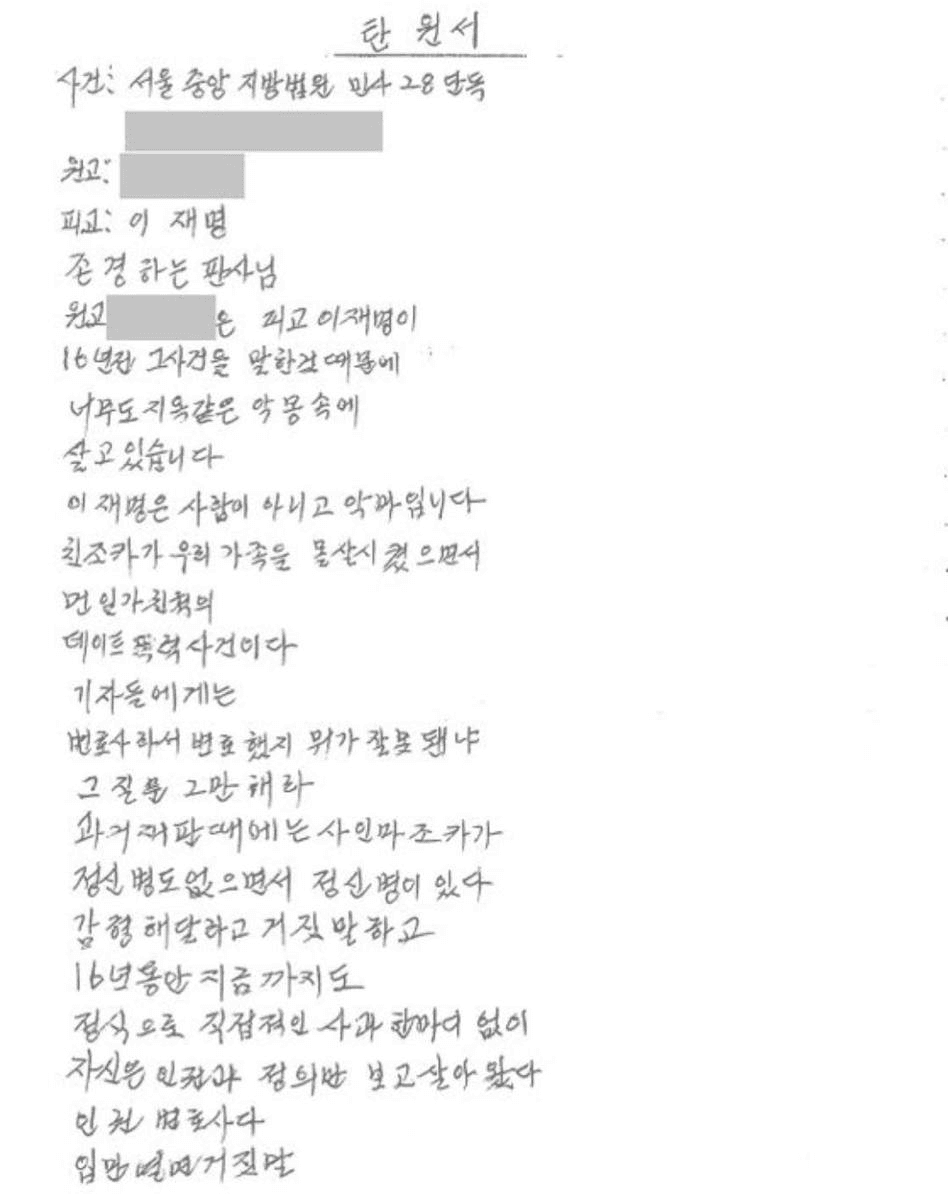 탄 원 서
사건: 서울 중앙 지방법원 민사 28 단독
원고:
피고: 이 재 명
존경 하는 판사님
원고 은 피고 이재명이
16년전 그사건을 말한것 때문에
너무도 지옥같은 악몽 속에
살고 있습니다
이 재명은 사람이 아니고 악마입니다
친조카가 우리 가족을 몰살시켰으면서
먼 일가친척의
데이트 폭력 사건이다
기자들에게는
변호사라서 변호 했지 뭐가 잘못 됐냐
그 질문 그만 해라
과거재판때에는 살인마 조카가
정신병도 없으면서 정신병이 있다
감형 해달라고 거짓 말하고
16년동안 지금 까지도
정식으로 직접적인 사과 한마디 없이
자신은 인권과 정의만 보고 살아 왔다
인권 변호사다
입만 열면 거짓말